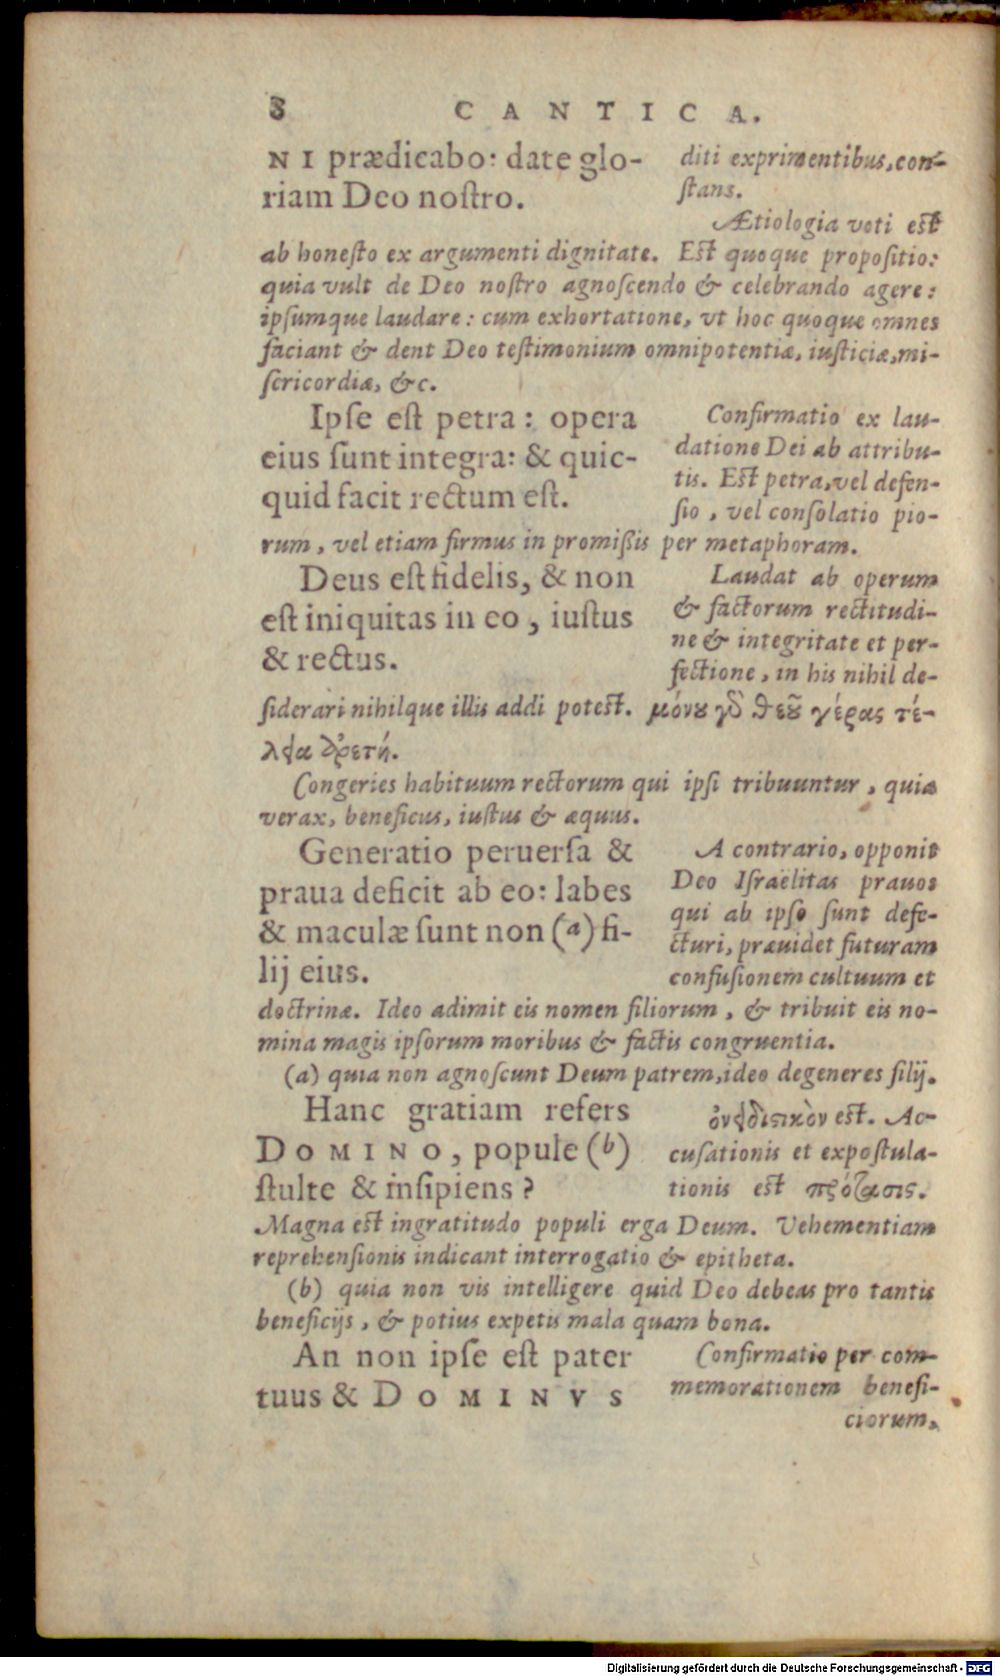 8 CANTICA.
NI prædicabo: date glo-
riam Deo noſtro.
diti exprimentibus, con-
ſtans.
Ætiologia voti eſt
ab honeſto ex argumenti dignitate. Eſt quoque propoſitio:
quia vult de Deo noſtro agnoſcendo & celebrando agere:
ipſumque laudare: cum exhortatione, vt hoc quoque omnes
faciant & dent Deo teſtimonium omnipotentiæ, iuſticiæ, mi-
ſericordiæ, &c.
Ipſe eſt petra: opera
eius ſunt integra: & quic-
quid facit rectum eſt.
Confirmatio ex lau-
datione Dei ab attribu-
tis. Eſt petra, vel defen-
ſio, vel conſolatio pio-
rum, vel etiam firmus in promißis per metaphoram.
Deus eſt fidelis, & non
eſt iniquitas in eo, iuſtus
& rectus.
Laudat ab operum
& factorum rectitudi-
ne & integritate et per-
fectione, in his nihil de-
ſiderari nihilque illis addi poteſt. μόνου γὸ θεοῦ γέρας τέ-
λεια ἀρετή.
Congeries habituum rectorum qui ipſi tribuuntur, quia
verax, beneficus, iuſtus & æquus.
Generatio peruerſa &
praua deficit ab eo: labes
& maculæ ſunt non (a) fi-
lij eius.
A contrario, opponit
Deo Iſraelitas prauos
qui ab ipſo ſunt defe-
cturi, præuidet futuram
confuſionem cultuum et
doctrinæ. Ideo adimit eis nomen filiorum, & tribuit eis no-
mina magis ipſorum moribus & factis congruentia.
(a) quia non agnoſcunt Deum patrem, ideo degeneres filij.
Hanc gratiam refers
DOMINO, popule (b)
ſtulte & inſipiens?
ὀνειδιστικὸν eſt. Ac-
cuſationis et expoſtula-
tionis eſt πρότασις.
Magna eſt ingratitudo populi erga Deum. Vehementiam
reprehenſionis indicant interrogatio & epitheta.
(b) quia non vis intelligere quid Deo debeas pro tantis
beneficijs, & potius expetis mala quam bona.
An non ipſe eſt pater
tuus & DOMINVS
Confirmatio per com-
memorationem benefi-
ciorum,
Digitalisierung gefördert durch die Deutsche Forschungsgemeinschaft - DFG